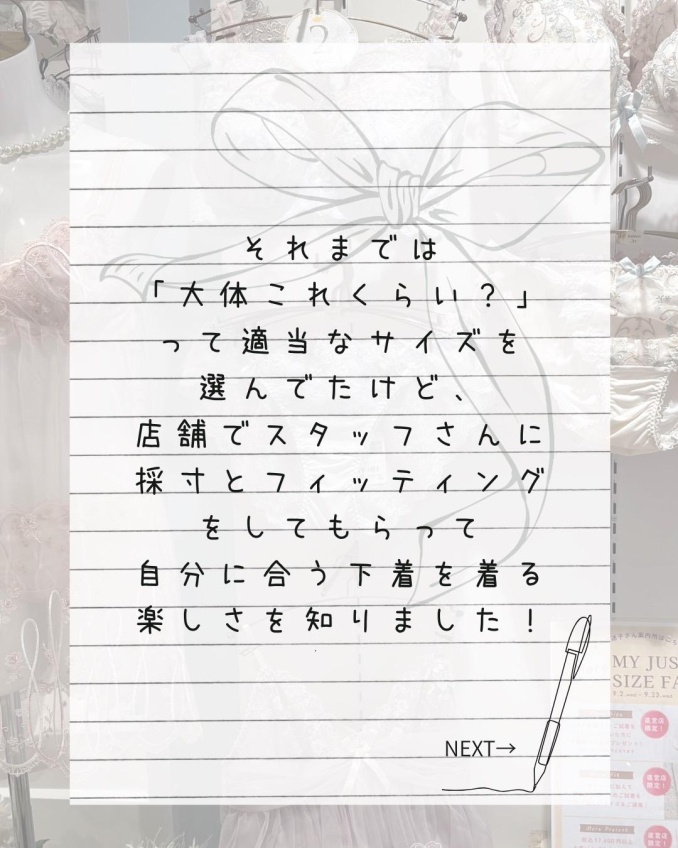 それまでは
「大体これくらい？」
って適当なサイズを
選んでたけど、
店舗でスタッフさんに
採寸とフィッティング
をしてもらって
自分に合う下着を着る
楽しさを知りました！
NEXT→
MY JUS
SIZE FA
直営店
限定！
直営店
限定！
直営店
限定！